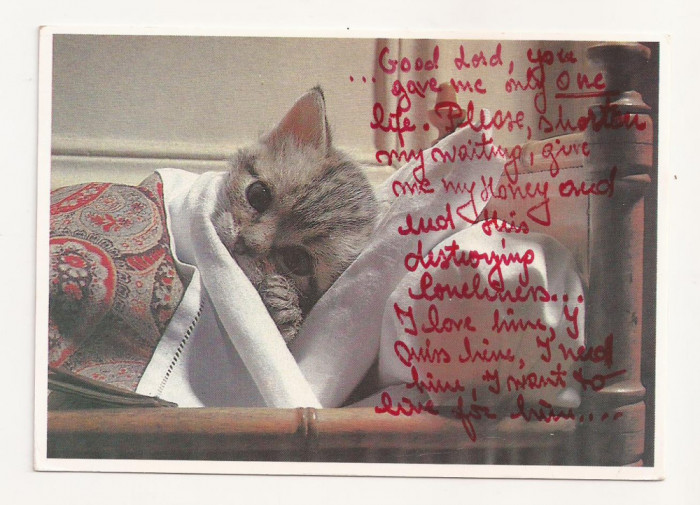 ...Good Lord, you
gave me only one
life. Please, shorten
my waiting, give
me my Honey and
end this
destroying
loneliness...
I love him, I
miss him, I need
him, I want to
live for him....